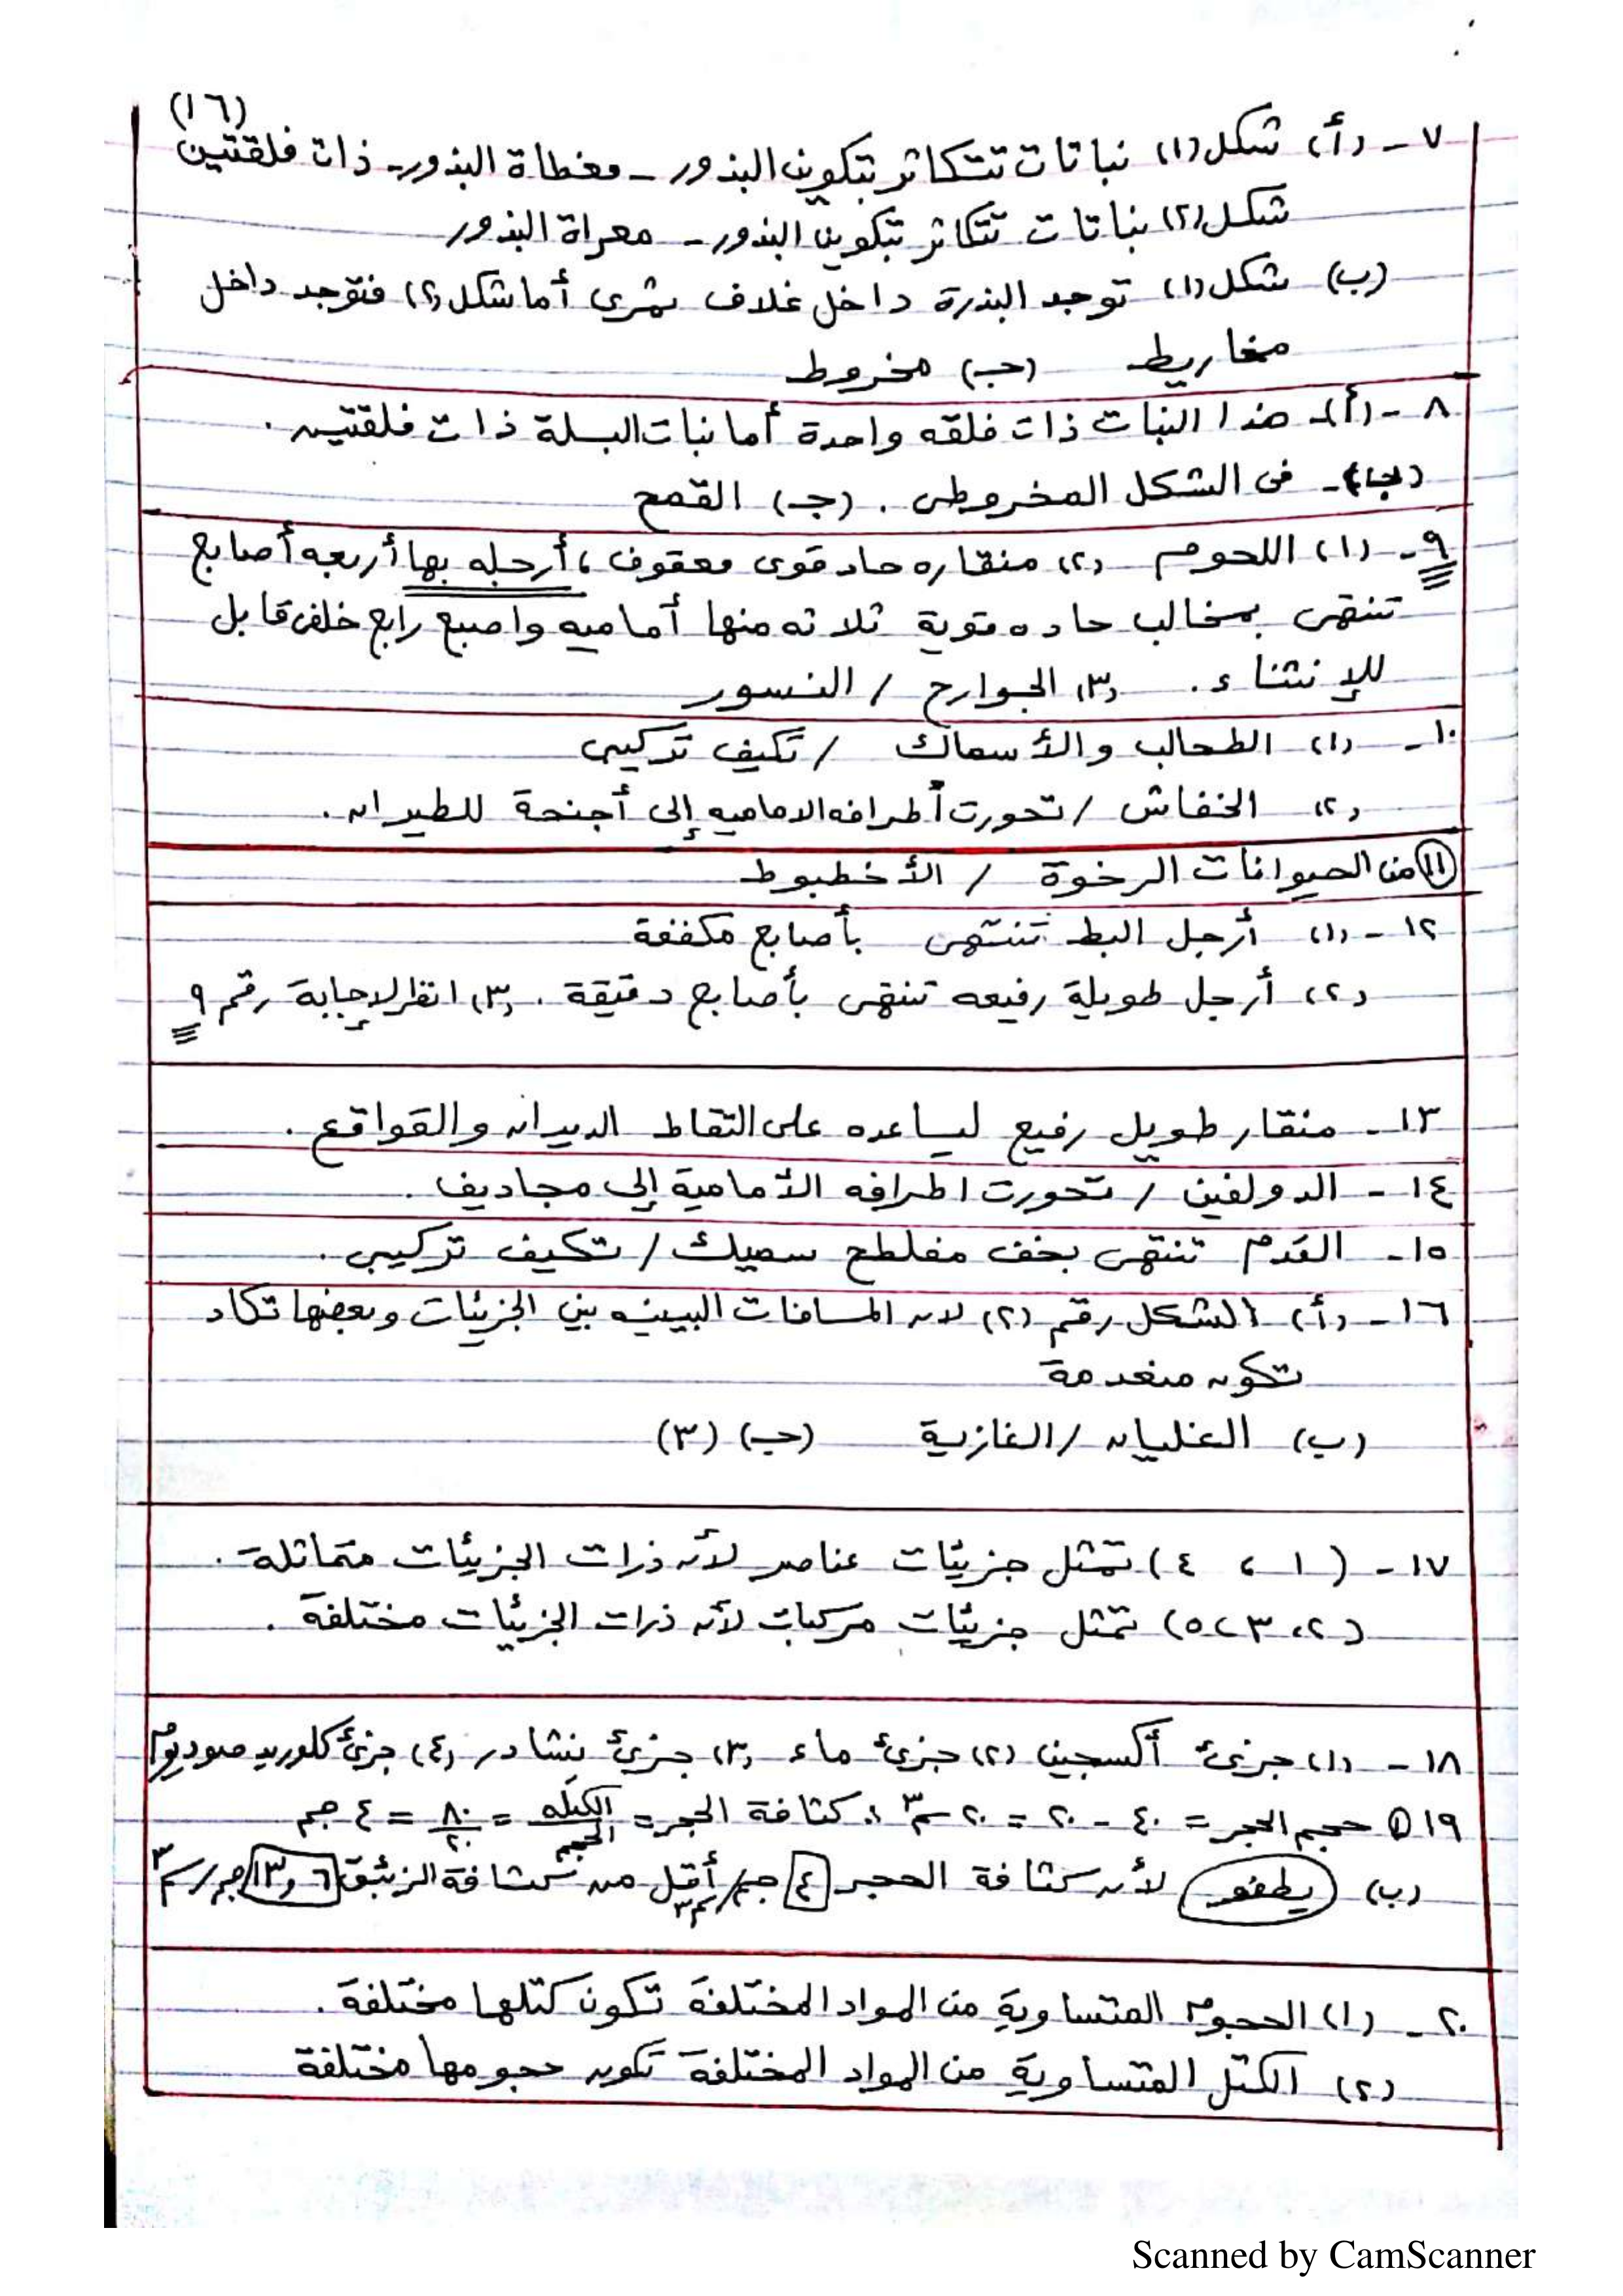 (١٦)
٧ - (أ) شكل (١) نباتات تتكاثر بتكوين البذور - مغطاة البذور - ذات فلقتين
شكل (٢) نباتات تتكاثر بتكوين البذور - معراة البذور
(ب) شكل (١) توجد البذرة داخل غلاف ثمرى أما شكل (٢) فتوجد داخل
مخاريط (جـ) مخروط
٨ - (أ) - هذا النبات ذات فلقه واحدة أما نبات البسلة ذات فلقتين .
(ب) - فى الشكل المخروطى . (جـ) القمح
٩ - (١) اللحوم (٢) منقاره حاد قوى معقوف ، أرجله بها أربعه أصابع
تنتهى بمخالب حاده قوية ثلاثه منها أماميه واصبع رابع خلفى قابل
للإنثناء . (٣) الجوارح / النسور
١٠ - (١) الطحالب والأسماك / تكيف تركيبى
(٢) الخفاش / تحورت أطرافه الاماميه إلى أجنحة للطيران .
(١١) من الحيوانات الرخوة / الأخطبوط
١٢ - (١) أرجل البط تنتهى بأصابع مكففة
(٢) أرجل طويلة رفيعه تنتهى بأصابع دقيقة . (٣) انظر لإجابة رقم ٩
١٣ - منقار طويل رفيع ليساعده على التقاط الديدان والقواقع .
١٤ - الدولفين / تحورت اطرافه الأمامية إلى مجاديف .
١٥ - القدم تنتهى بخف مفلطح سميك / تكيف تركيبى .
١٦ - (أ) الشكل رقم (٢) لان المسافات البينيه بين الجزيئات وبعضها تكاد
تكون منعدمة
(ب) الغليان / الغازية (جـ) (٣)
١٧ - (١ ، ٤) تمثل جزيئات عناصر لأن ذرات الجزيئات متماثلة .
(٢ ، ٣ ، ٥) تمثل جزيئات مركبات لأن ذرات الجزيئات مختلفة .
١٨ - (١) جزئ أكسجين (٢) جزئ ماء (٣) جزئ نشادر (٤) جزئ كلوريد صوديوم
١٩ (١) حجم الحجر = ٤٠ - ٢٠ = ٢٠ سم٣ ∴ كثافة الحجر = الكتله / الحجم = ٨٠ / ٢٠ = ٤ جم
(ب) يطفو لأن كثافة الحجر ٤ جم/سم٣ أقل من كثافة الزئبق ١٣,٦ جم/سم٣
٢٠ - (١) الحجوم المتساوية من المواد المختلفة تكون كتلها مختلفة .
(٢) الكتل المتساوية من المواد المختلفة تكون حجومها مختلفة
Scanned by CamScanner